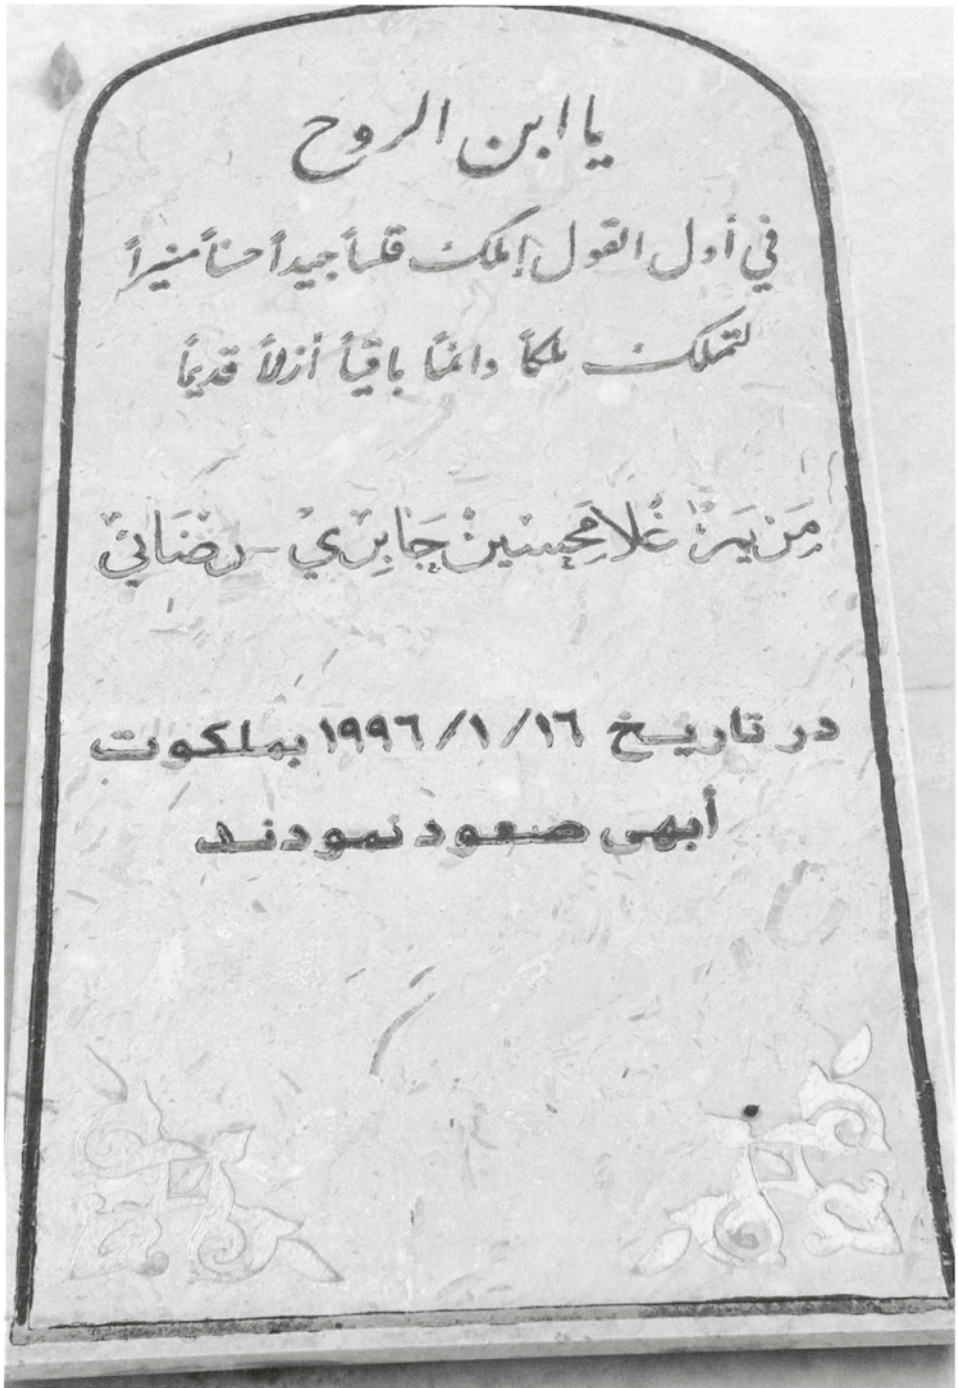 يا ابن الروح
في أول القول إملك قلباً جيداً حسناً منيراً
لتملك ملكاً دائماً باقياً أزلاً قديماً
غُلامحسين جَابِري - رضائي
در تاريخ ١٩٩٦/١/١٦ بملكوت
أبهى صعود نمودند